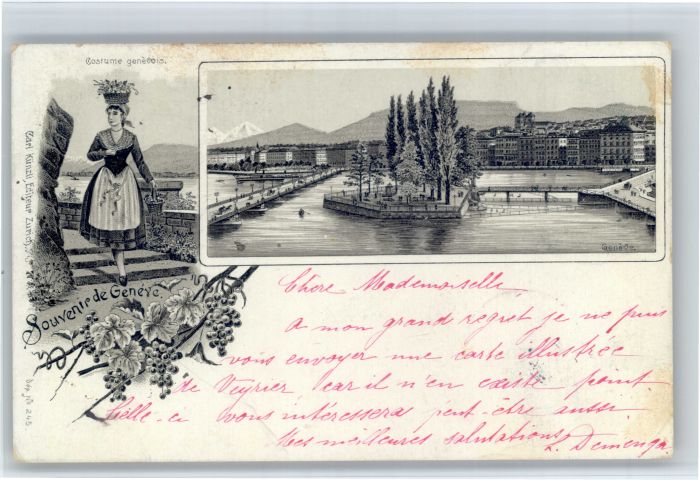 Costume genèvois.
Carl Künzli, Editeur Zurich
Souvenir de Genève.
Dep. No 245
Genève.
Chère Mademoiselle
A mon grand regret je ne puis
vous envoyer une carte illustrée
de Veyrier car il n'en existe point.
Celle-ci vous intéressera peut-être aussi.
Mes meilleures salutations
L. Demenga.